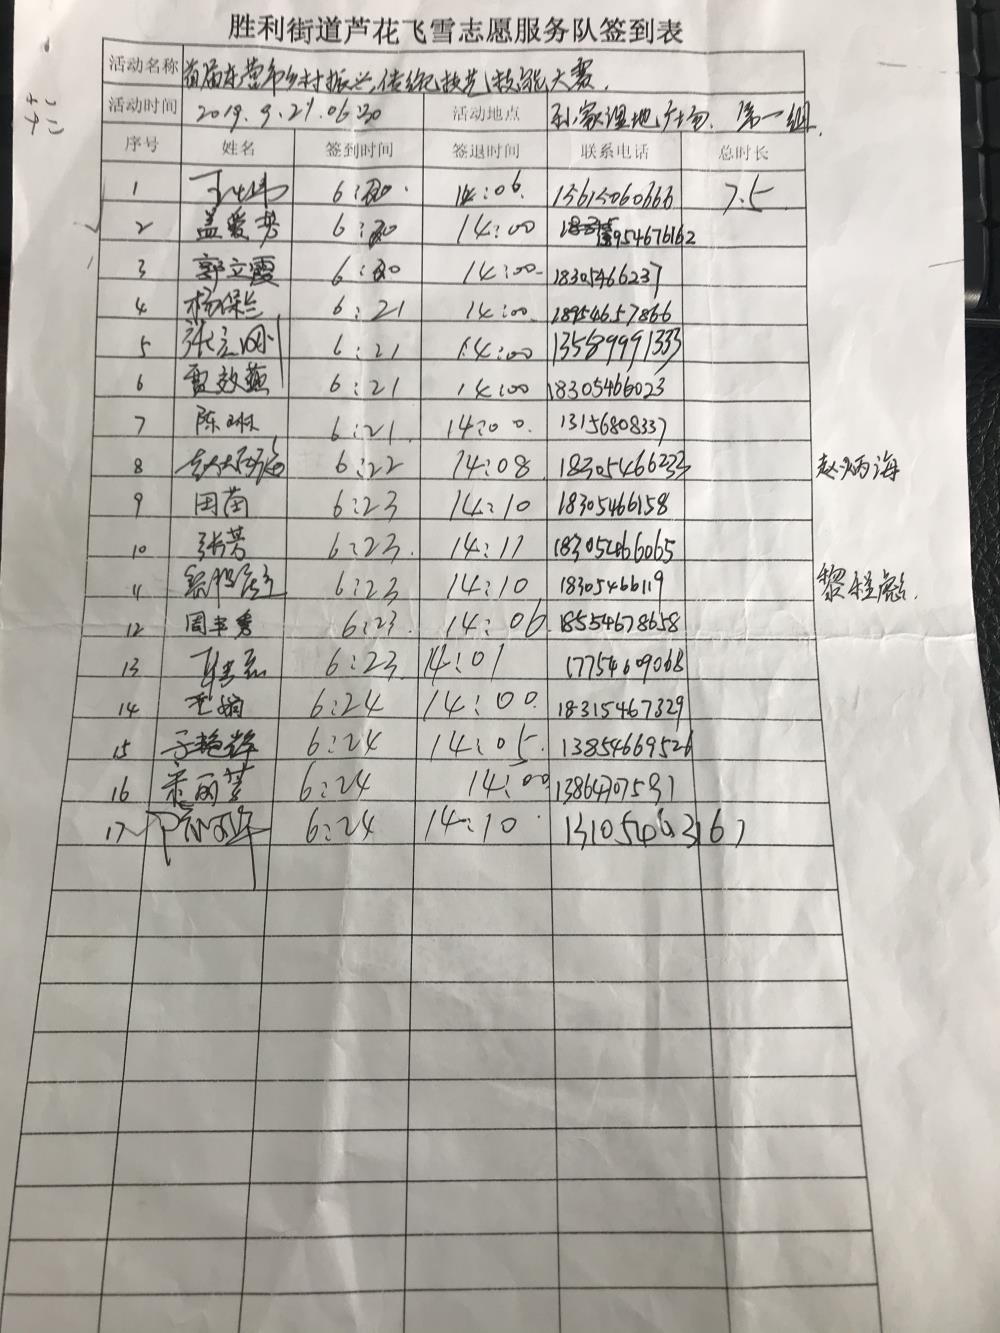 胜利街道芦花飞雪志愿服务队签到表
活动名称 首届东营市乡村振兴传统技艺技能大赛.
活动时间 2019.9.21.06:20 活动地点 湿地广场. 第一组.
序号 姓名 签到时间 签退时间 联系电话 总时长
1 6:20. 14:06. 15615060666 7.5
2 盖爱芳 6:20 14:00 18954676162
3 郭立霞 6:20 14:00 18305466237
4 杨保兰 6:21 14:00 18954657866
5 张立刚 6:21 14:00 13589991333
6 雷效燕 6:21 14:00 18305466023
7 陈琳 6:21 14:00. 13156808337
8 6:22 14:08 18305466233 赵炳海
9 田苗 6:23 14:10 18305466158
10 张芳 6:23. 14:11 18305466065
11 6:23 14:10 18305466119
12 周丰秀 6:23. 14:06. 18554678658
13 6:23 14:01 17754609068
14 6:24 14:00. 18315467329
15 于艳辉 6:24 14:05. 13854669526
16 6:24 14:00
17 6:24 14:10 13105463167